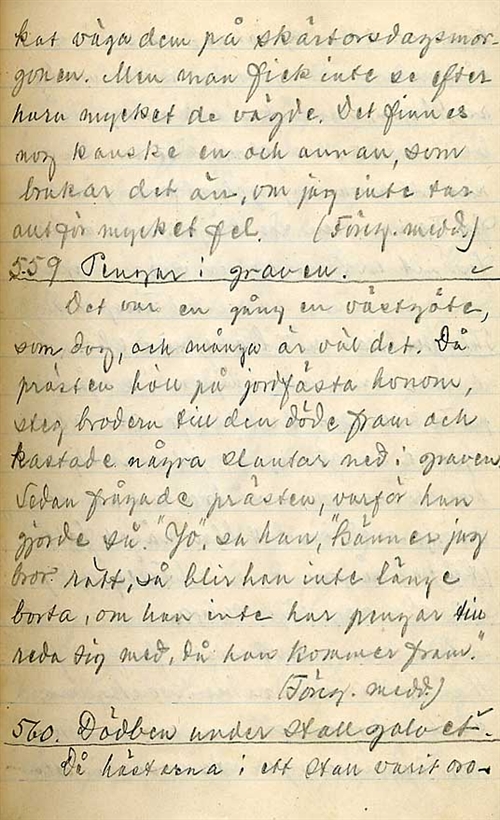 kat väga dem på skärtorsdagsmor-
gonen. Men man fick inte se efter
huru mycket de vägde. Det finnes
nog kanske en och annan, som
brukar det än, om jag inte tar
allt för mycket fel. (Föreg. medd.)
559 Pengar i graven.
Det var en gång en västgöte,
som dog, och många är väl det. Då
prästen höll på jordfästa honom,
steg brodern till den döde fram och
kastade några slantar ned i graven
Sedan frågade prästen, varför han
gjorde så. "Jo", sa han, "känner jag
bror rätt, så blir han inte länge
borta, om han inte har pengar till
reda sig med, då han kommer fram."
(Föreg. medd.)
560. Dödben under stallgolvet.
Då hästarna i ett stall varit oro-